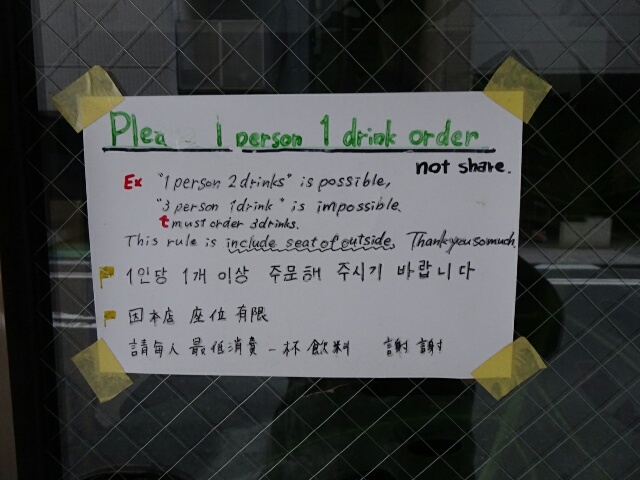 Please 1 person 1 drink order
not share.
Ex "1 person 2 drinks" is possible,
"3 person 1 drink" is impossible.
must order 3 drinks.
This rule is include seat of outside. Thank you so much.
1인당 1개 이상 주문해 주시기 바랍니다
因本店 座位有限
請每人 最低消費 一杯飲料 謝謝